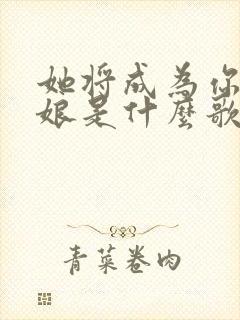 她将成为你
娘是什麼歌
青菜卷肉